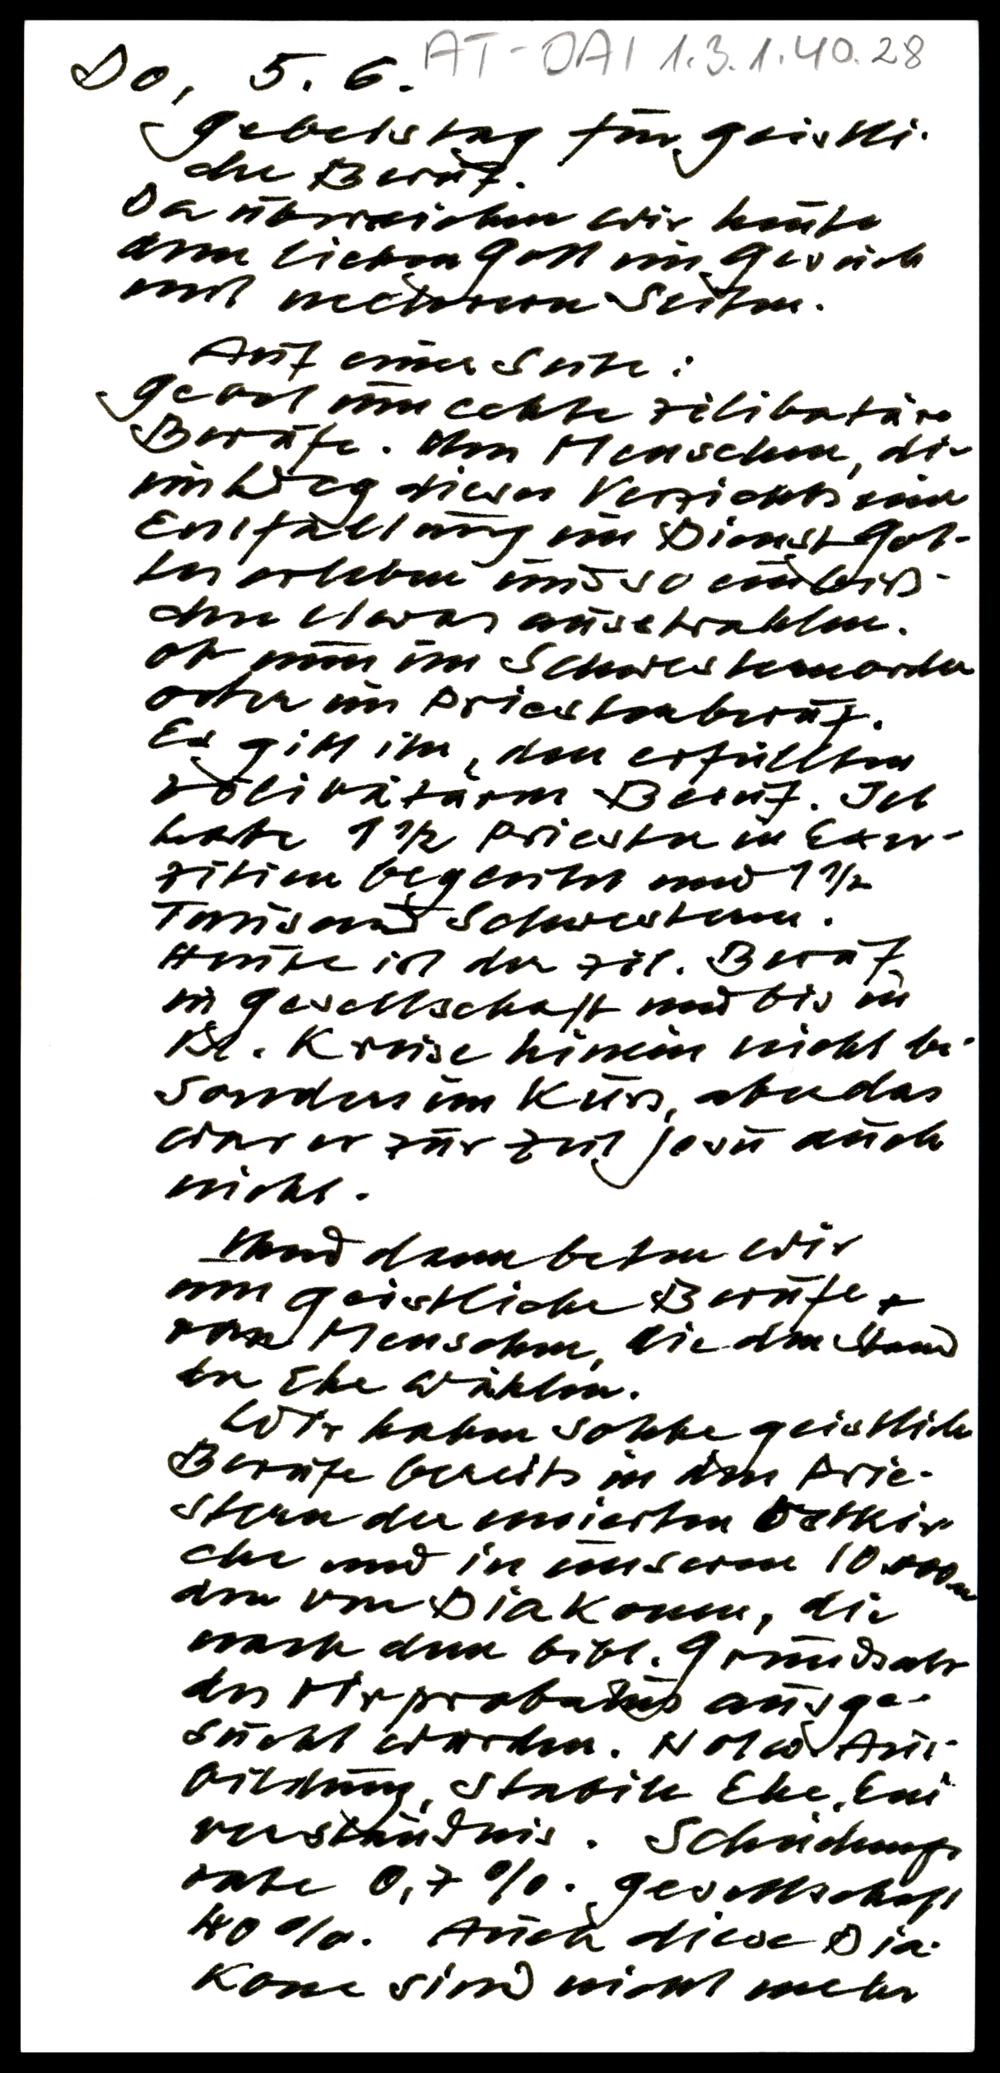 AT-OAI 1.3.1.40.28
Do, 5. 6.
Gebetstag für geistli-
che Beruf.
Da überreichen wir heute
dem lieben Gott ein Gesuch
mit mehreren Seiten.
Auf einer Seite:
Gebet um echte zölibatäre
Berufe. Um Menschen, die
im Weg dieses Verzichts eine
Entfaltung im Dienst Got-
tes erleben und so ein biß-
chen etwas ausstrahlen.
ob nun im Schwesternorden
oder im Priesterberuf.
Es gibt ihn, den erfüllten
zölibatären Beruf. Ich
habe 1 1/2 Priester in Exer-
zitien begleitet und 1 1/2
Tausend Schwestern.
Heute ist der zöl. Beruf
in Gesellschaft und bis in
Kl. Kreise hinein nicht be-
sonders im Kurs, aber das
war er zur Zeit Jesu auch
nicht.
Und dann beten wir
um geistliche Berufe +
von Menschen, die den Stand
der Ehe wählen.
Wir haben solche geistliche
Berufe bereits in den Prie-
stern der unierten Ostkir-
che und in unseren 10.000en
den von Diakonen, die
nach dem bibl. Grundsatz
des Vir probatus ausge-
sucht wurden. Notw Aus-
bildung, Stabile Ehe, Ein
verständnis. Scheidungs
rate 0,7 %. Gesellschaft
40 %. Auch diese Dia-
kone sind nicht mehr